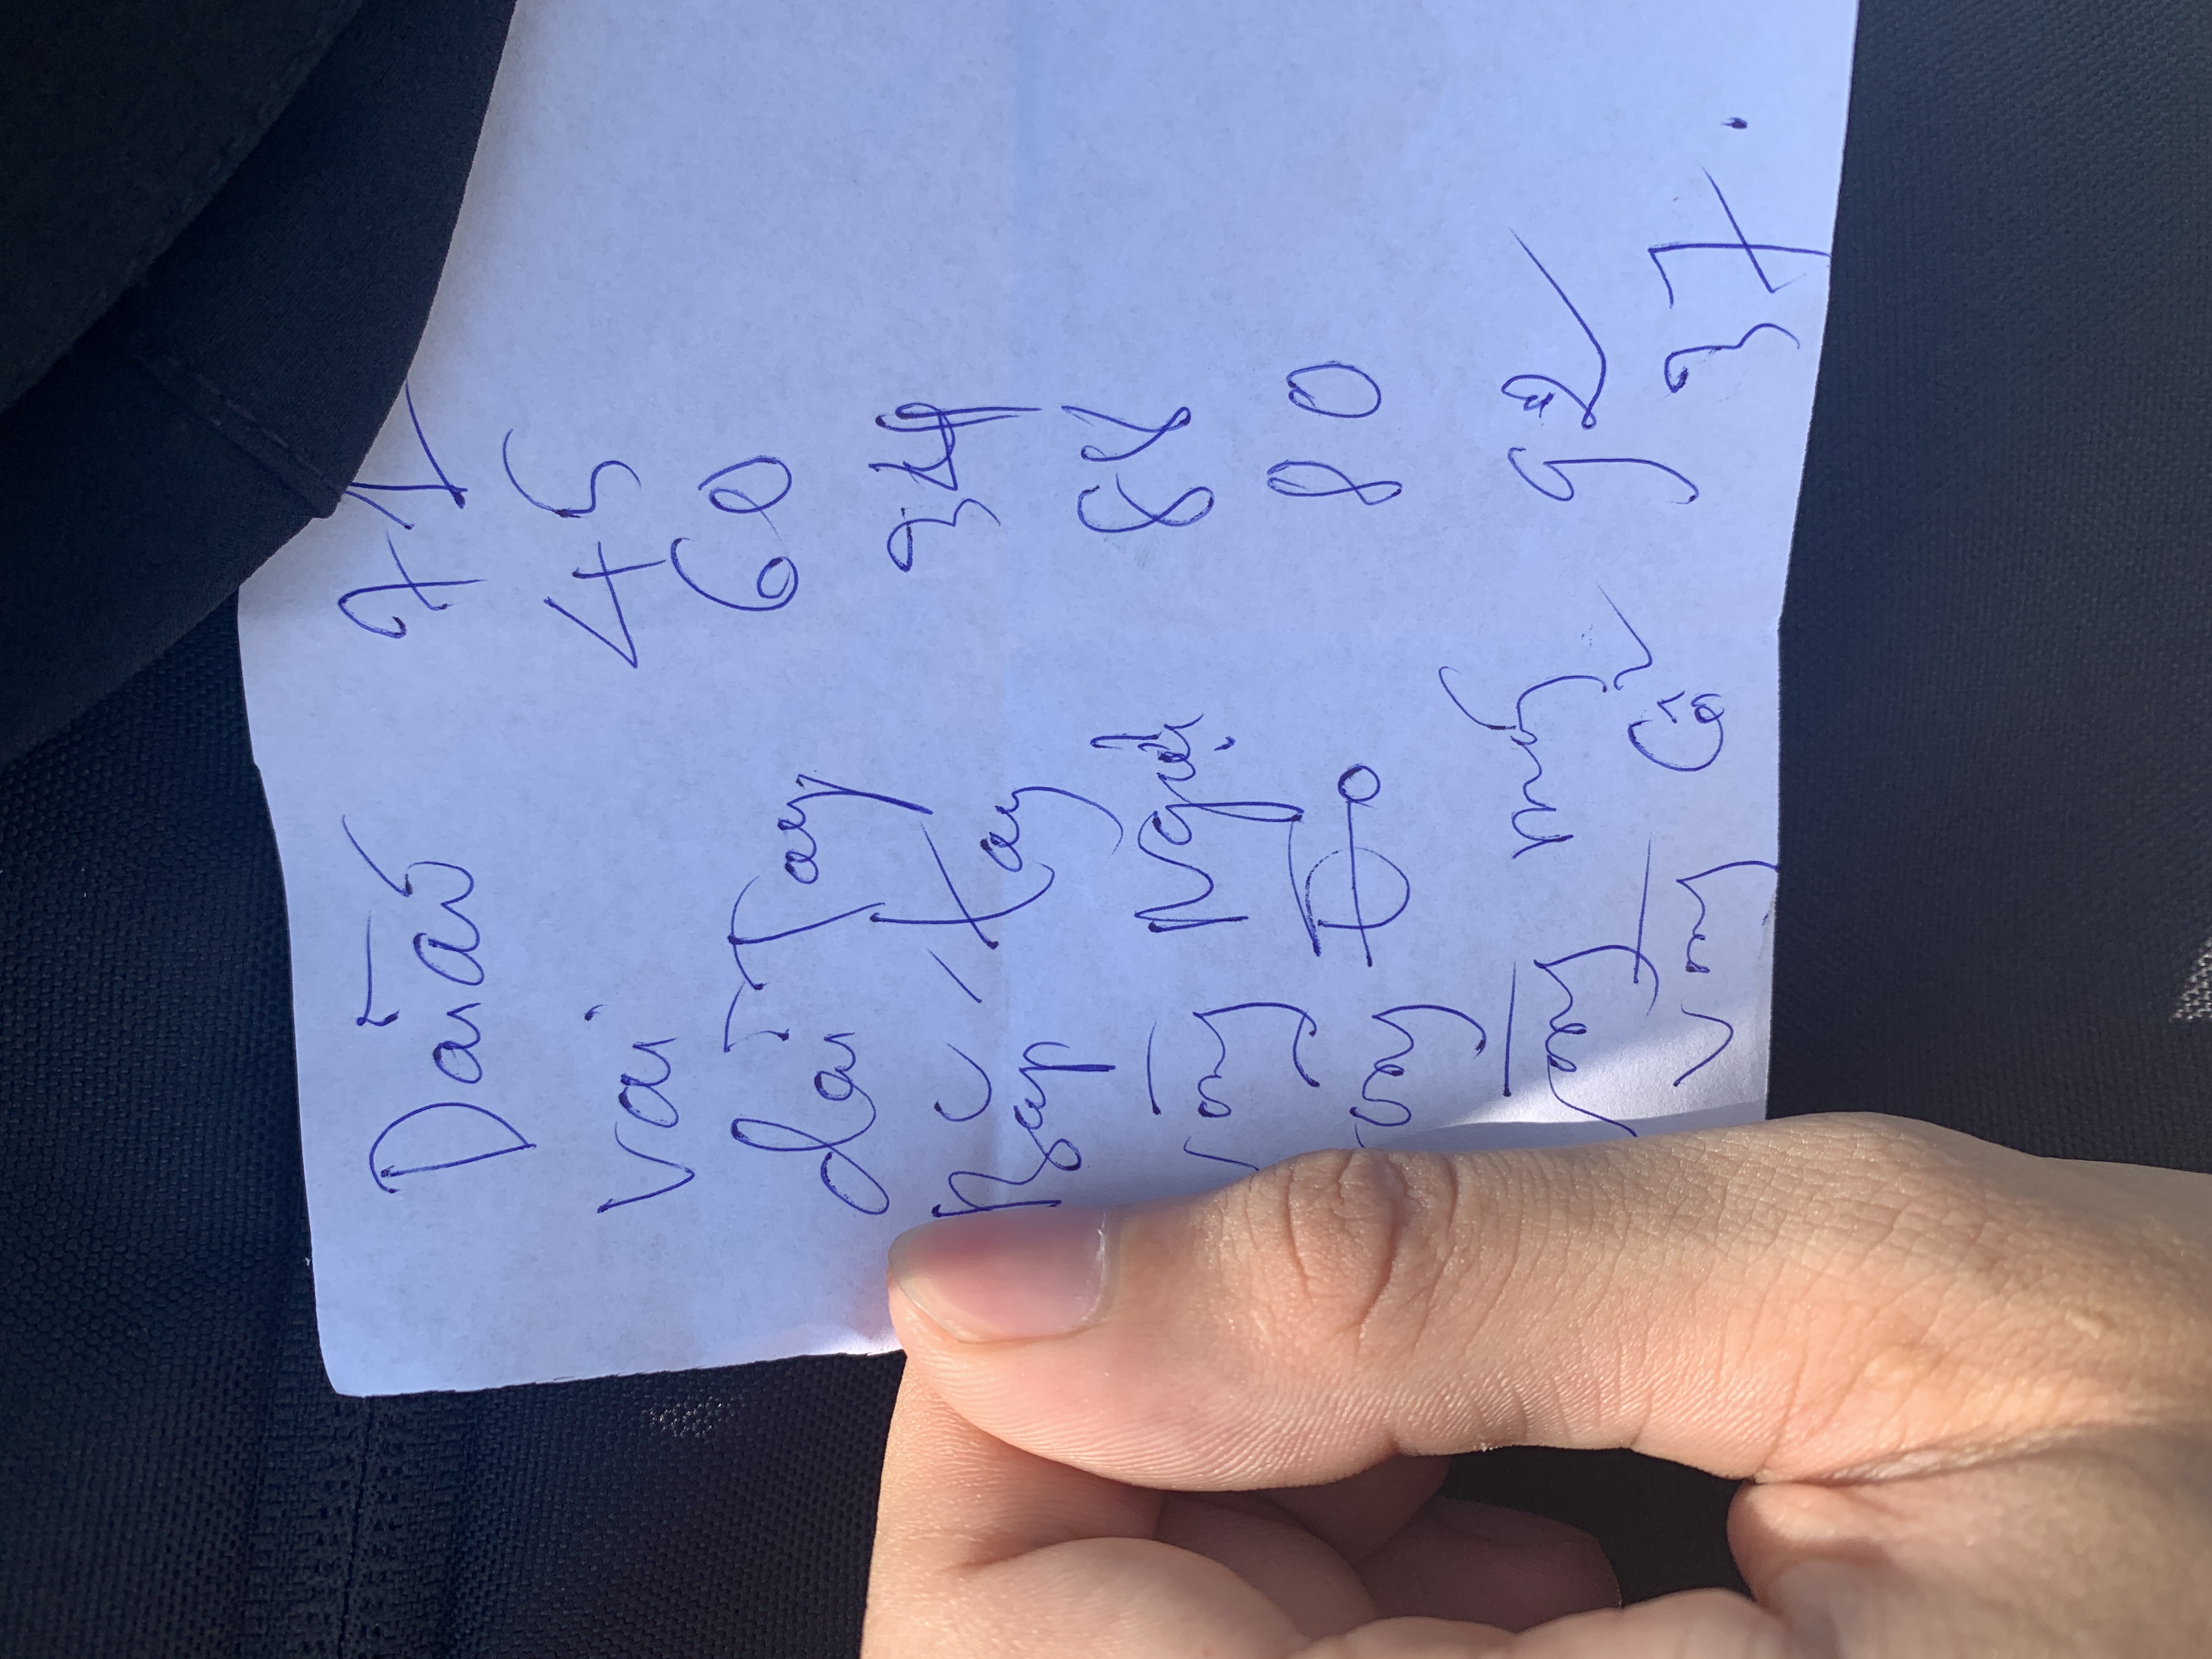 Dài áo 71
Vai 45
dài Tay 60
Bắp tay 34
vòng Ngực 88
vòng Eo 80
vòng mông 92
Vòng Cổ 37.